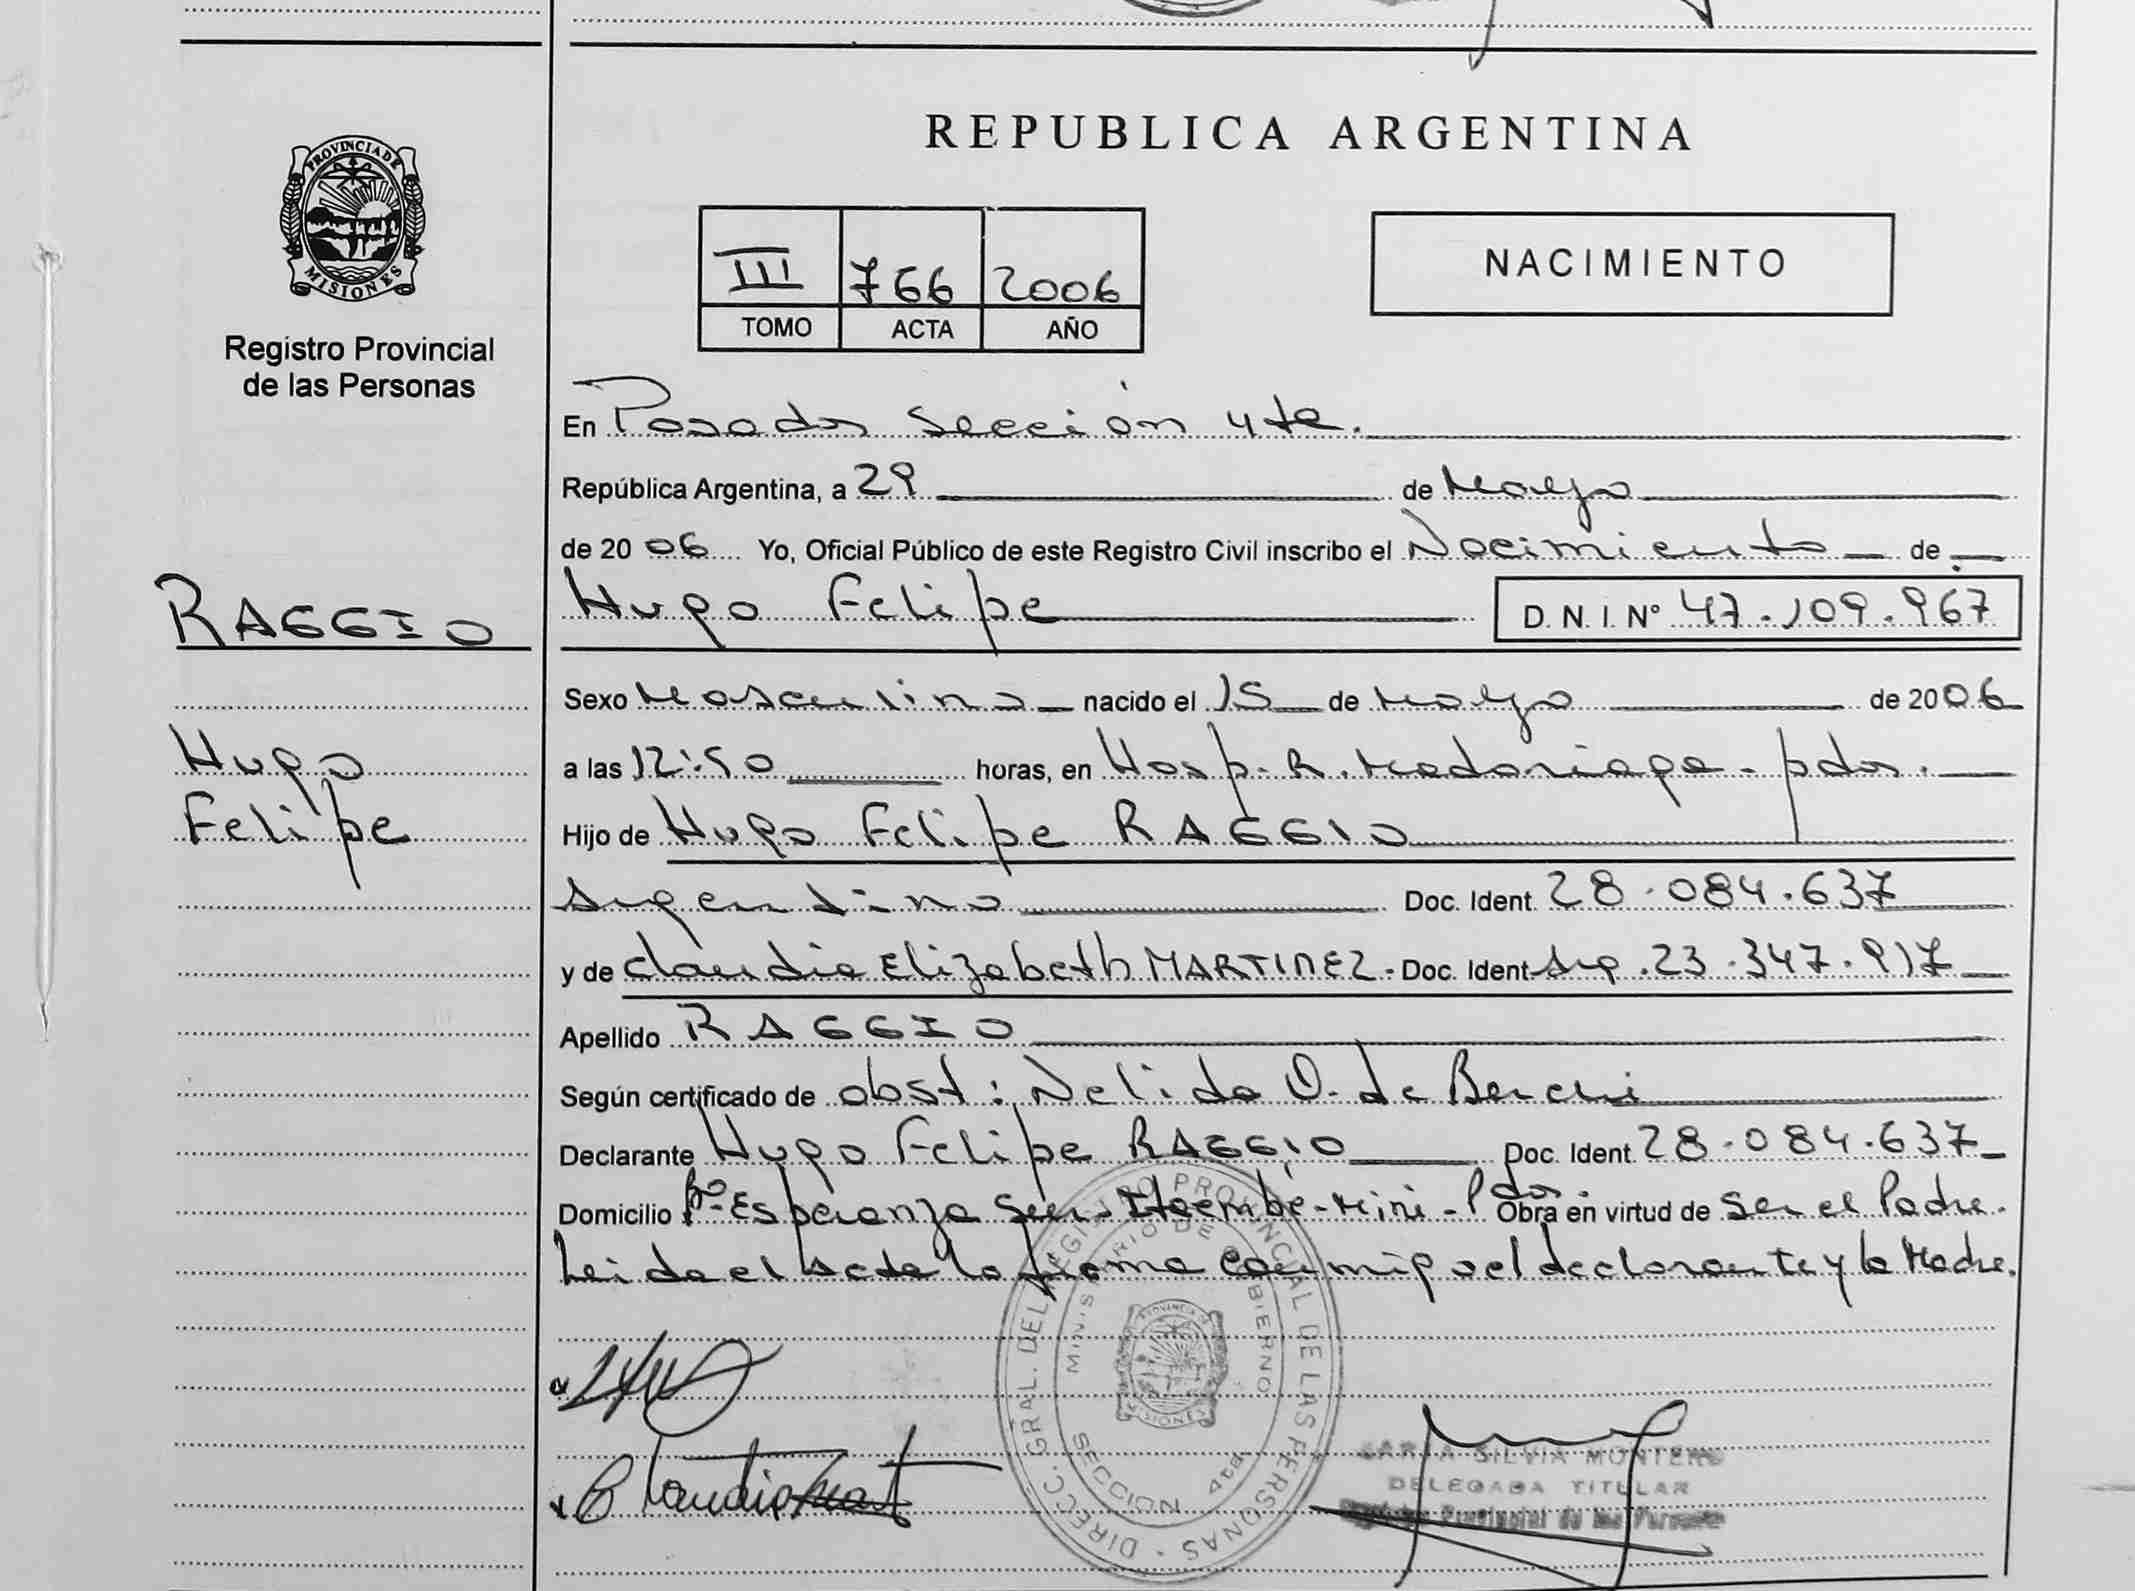 REPUBLICA ARGENTINA
PROVINCIA DE
MISIONES
Registro Provincial
de las Personas
III 766 2006
TOMO ACTA AÑO
NACIMIENTO
En Posadas Sección 4ta.
República Argentina, a 29 de Mayo
de 20 06 Yo, Oficial Público de este Registro Civil inscribo el Nacimiento de
RAGGIO
Hugo Felipe D. N. I. Nº 47.109.967
Sexo Masculino nacido el 15 de Mayo de 2006
Hugo
a las 12:50 horas, en Hosp. R. Madariaga - pdas.
Felipe
Hijo de Hugo Felipe RAGGIO
Argentino Doc. Ident. 28.084.637
y de Claudia Elizabeth MARTINEZ. Doc. Ident Arg. 23.347.917
Apellido RAGGIO
Según certificado de obst: Nelida O. de
Declarante Hugo Felipe RAGGIO Doc. Ident. 28.084.637
Domicilio Bº Esperanza Itaembé-Mini - Pdas. Obra en virtud de ser el Padre.
Leida el Acta la firma conmigo el declarante y la Madre.
DIRECC. GRAL. DEL REGISTRO PROVINCIAL DE LAS PERSONAS
MINISTERIO DE GOBIERNO
PROVINCIA DE
MISIONES
SECCION 4ta
Claudia
MARIA SILVIA MONTERO
DELEGADA TITULAR
Registro Provincial de las Personas